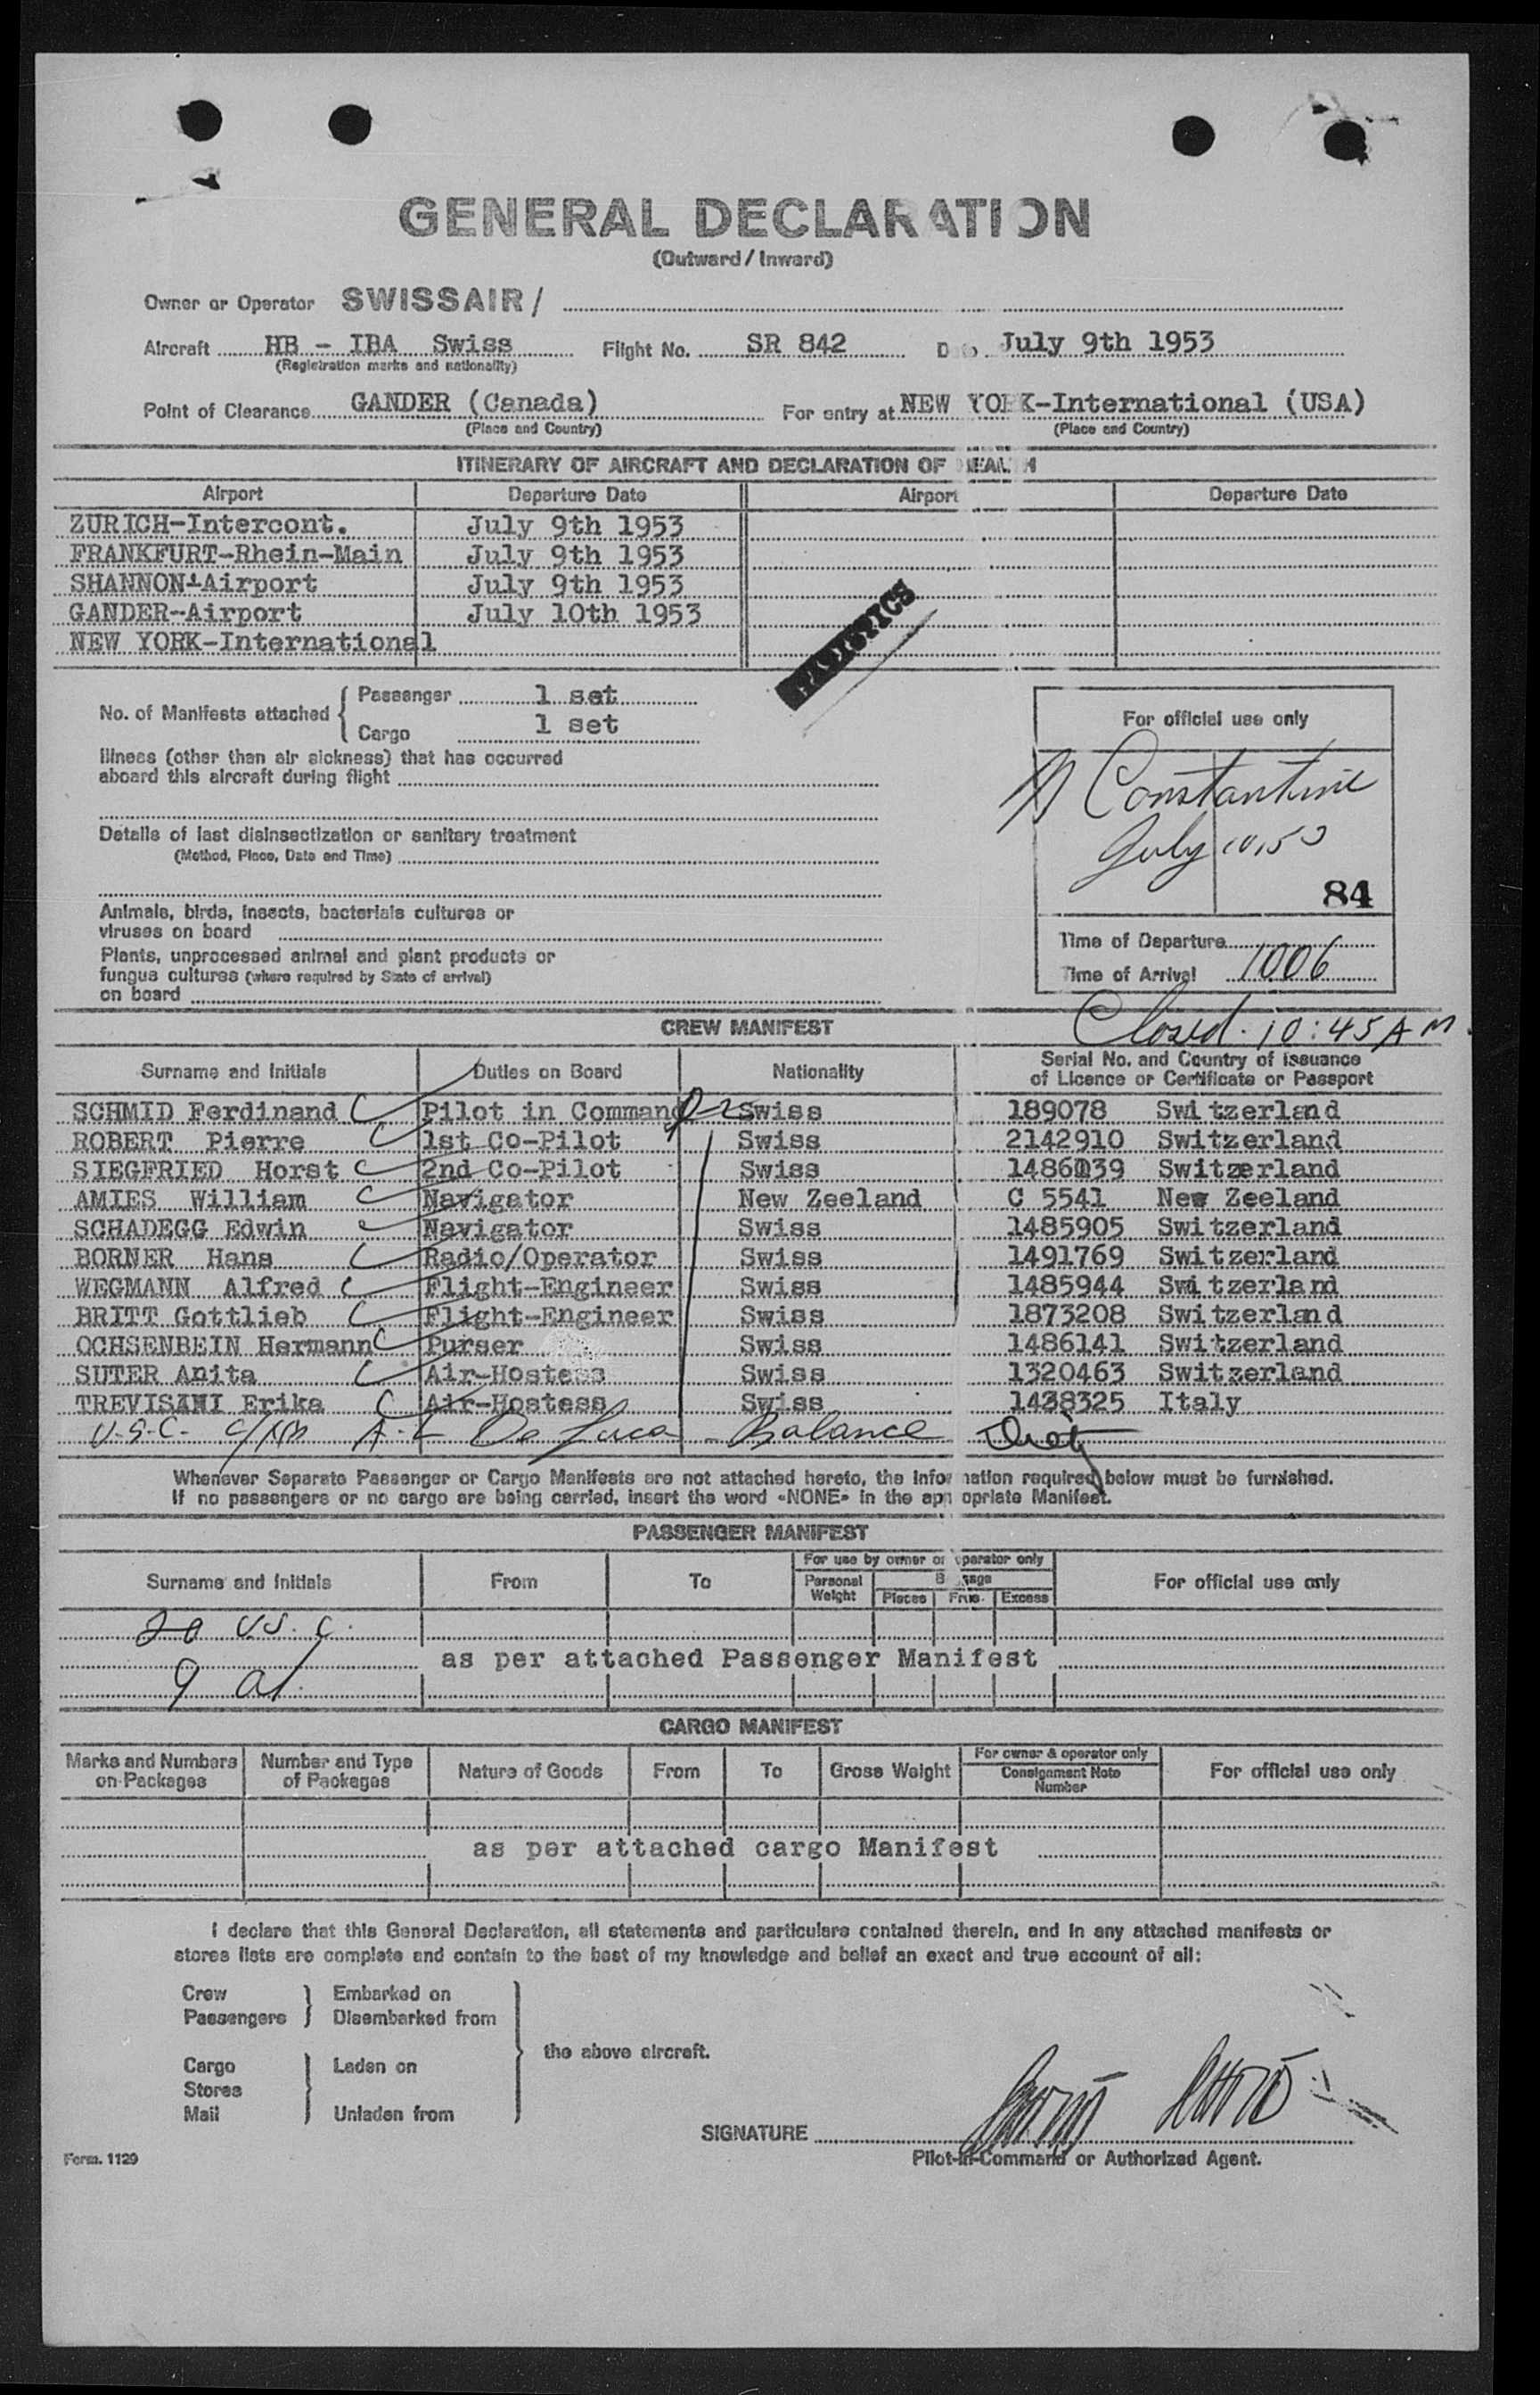 GENERAL DECLARATION
(Outward / Inward)
Owner or Operator SWISSAIR /
Aircraft HB - IBA Swiss Flight No. SR 842 July 9th 1953
(Registration marks and nationality)
Point of Clearance GANDER (Canada) For entry at NEW YORK-International (USA)
(Place and Country) (Place and Country)
ITINERARY OF AIRCRAFT AND DECLARATION OF HEALTH
Airport Departure Date Airport Departure Date
ZURICH-Intercont. July 9th 1953
FRANKFURT-Rhein-Main July 9th 1953
SHANNON-Airport July 9th 1953
GANDER-Airport July 10th 1953
NEW YORK-International
No. of Manifests attached { Passenger 1 set
Cargo 1 set
For official use only
Illness (other than air sickness) that has occurred
aboard this aircraft during flight
Constantine
July 10, 53
Details of last disinsectization or sanitary treatment
(Method, Place, Date and Time)
84
Animals, birds, insects, bacterials cultures or
viruses on board
Plants, unprocessed animal and plant products or
fungus cultures (where required by State of arrival)
on board
Time of Departure
Time of Arrival 1006
Closed. 10:45 AM.
CREW MANIFEST
Surname and Initials Duties on Board Nationality Serial No. and Country of Issuance
of Licence or Certificate or Passport
SCHMID Ferdinand C Pilot in Command Swiss 189078 Switzerland
ROBERT Pierre C 1st Co-Pilot Swiss 2142910 Switzerland
SIEGFRIED Horst C 2nd Co-Pilot Swiss Switzerland
AMIES William C Navigator New Zeeland C 5541 New Zeeland
SCHADEGG Edwin C Navigator Swiss 1485905 Switzerland
BORNER Hans C Radio/Operator Swiss 1491769 Switzerland
WEGMANN Alfred C Flight-Engineer Swiss 1485944 Switzerland
BRITT Gottlieb C Flight-Engineer Swiss 1873208 Switzerland
OCHSENBEIN Hermann C Purser Swiss 1486141 Switzerland
SUTER Anita C Air-Hostess Swiss 1320463 Switzerland
TREVISANI Erika C Air-Hostess Swiss 1438325 Italy
De Luca - Balance
Whenever Separate Passenger or Cargo Manifests are not attached hereto, the information required below must be furnished.
If no passengers or no cargo are being carried, insert the word «NONE» in the appropriate Manifest.
PASSENGER MANIFEST
Surname and Initials From To For use by owner or operator only For official use only
Personal Weight Baggage
Pieces Excess
20 U.S.C.
as per attached Passenger Manifest
9 al.
CARGO MANIFEST
Marks and Numbers on Packages Number and Type of Packages Nature of Goods From To Gross Weight For owner & operator only Consignment Note Number For official use only
as per attached cargo Manifest
I declare that this General Declaration, all statements and particulars contained therein, and in any attached manifests or
stores lists are complete and contain to the best of my knowledge and belief an exact and true account of all:
Crew Embarked on
Passengers Disembarked from
the above aircraft.
Cargo Laden on
Stores
Mail Unladen from
SIGNATURE
Form. 1129 Pilot-in-Command or Authorized Agent.